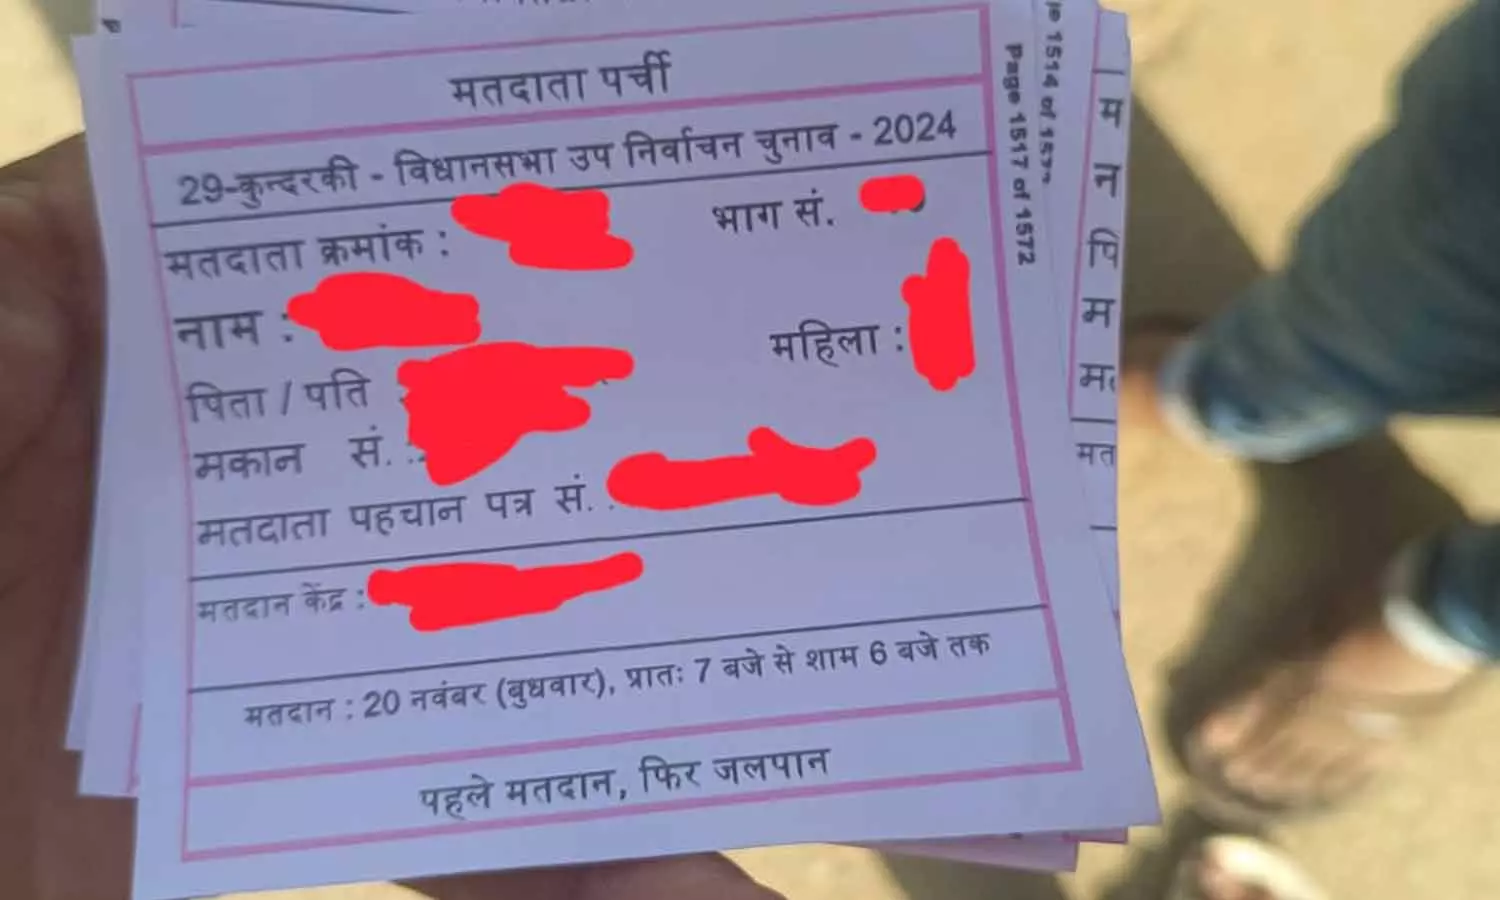 मतदाता पर्ची
29-कुन्दरकी - विधानसभा उप निर्वाचन चुनाव - 2024
मतदाता क्रमांक : भाग सं.
नाम : महिला :
पिता / पति
मकान सं. ..
मतदाता पहचान पत्र सं. .
मतदान केंद्र :
मतदान : 20 नवंबर (बुधवार), प्रातः 7 बजे से शाम 6 बजे तक
पहले मतदान, फिर जलपान
Page 1517 of 1572
1514 of
म
न
पि
म
मत